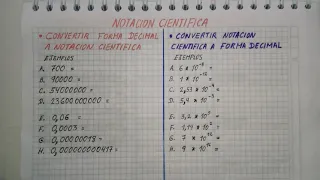 NOTACION CIENTIFICA
• CONVERTIR FORMA DECIMAL
A NOTACION CIENTIFICA
EJEMPLOS
A. 700 =
B. 90000 =
C. 54000000 =
D. 23600000000 =
E. 0,06 =
F. 0,0003 =
G. 0,00000018 =
H. 0,000000000417 =
• CONVERTIR NOTACION
CIENTIFICA A FORMA DECIMAL
EJEMPLOS
A. 6 *
B. 1 *
C. 2,53 *
D. 5,4 *
E. 3,2 *
F. *
G. 7 *
H. 9 *